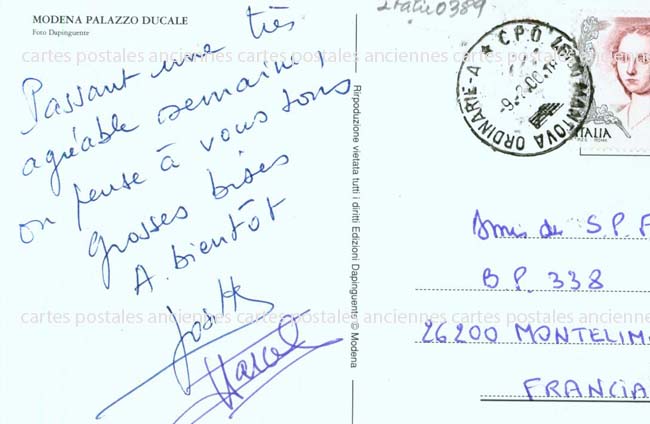 MODENA PALAZZO DUCALE
Foto Dapinguente
Passant une très
agréable semaine,
on pense à vous tous
grosses bises
A. bientôt
Josette
Marcel
Riproduzione vietata tutti i diritti Edizioni Dapinguente © Modena
0389
C.P.O. MANTOVA ORDINARIE-A
ITALIA
Amis de S.P.F
B P. 338
26200 MONTELIM
FRANCIA
cartes postales anciennes cartes postales anciennes cartes postales
cartes postales anciennes cartes postales anciennes cartes postales